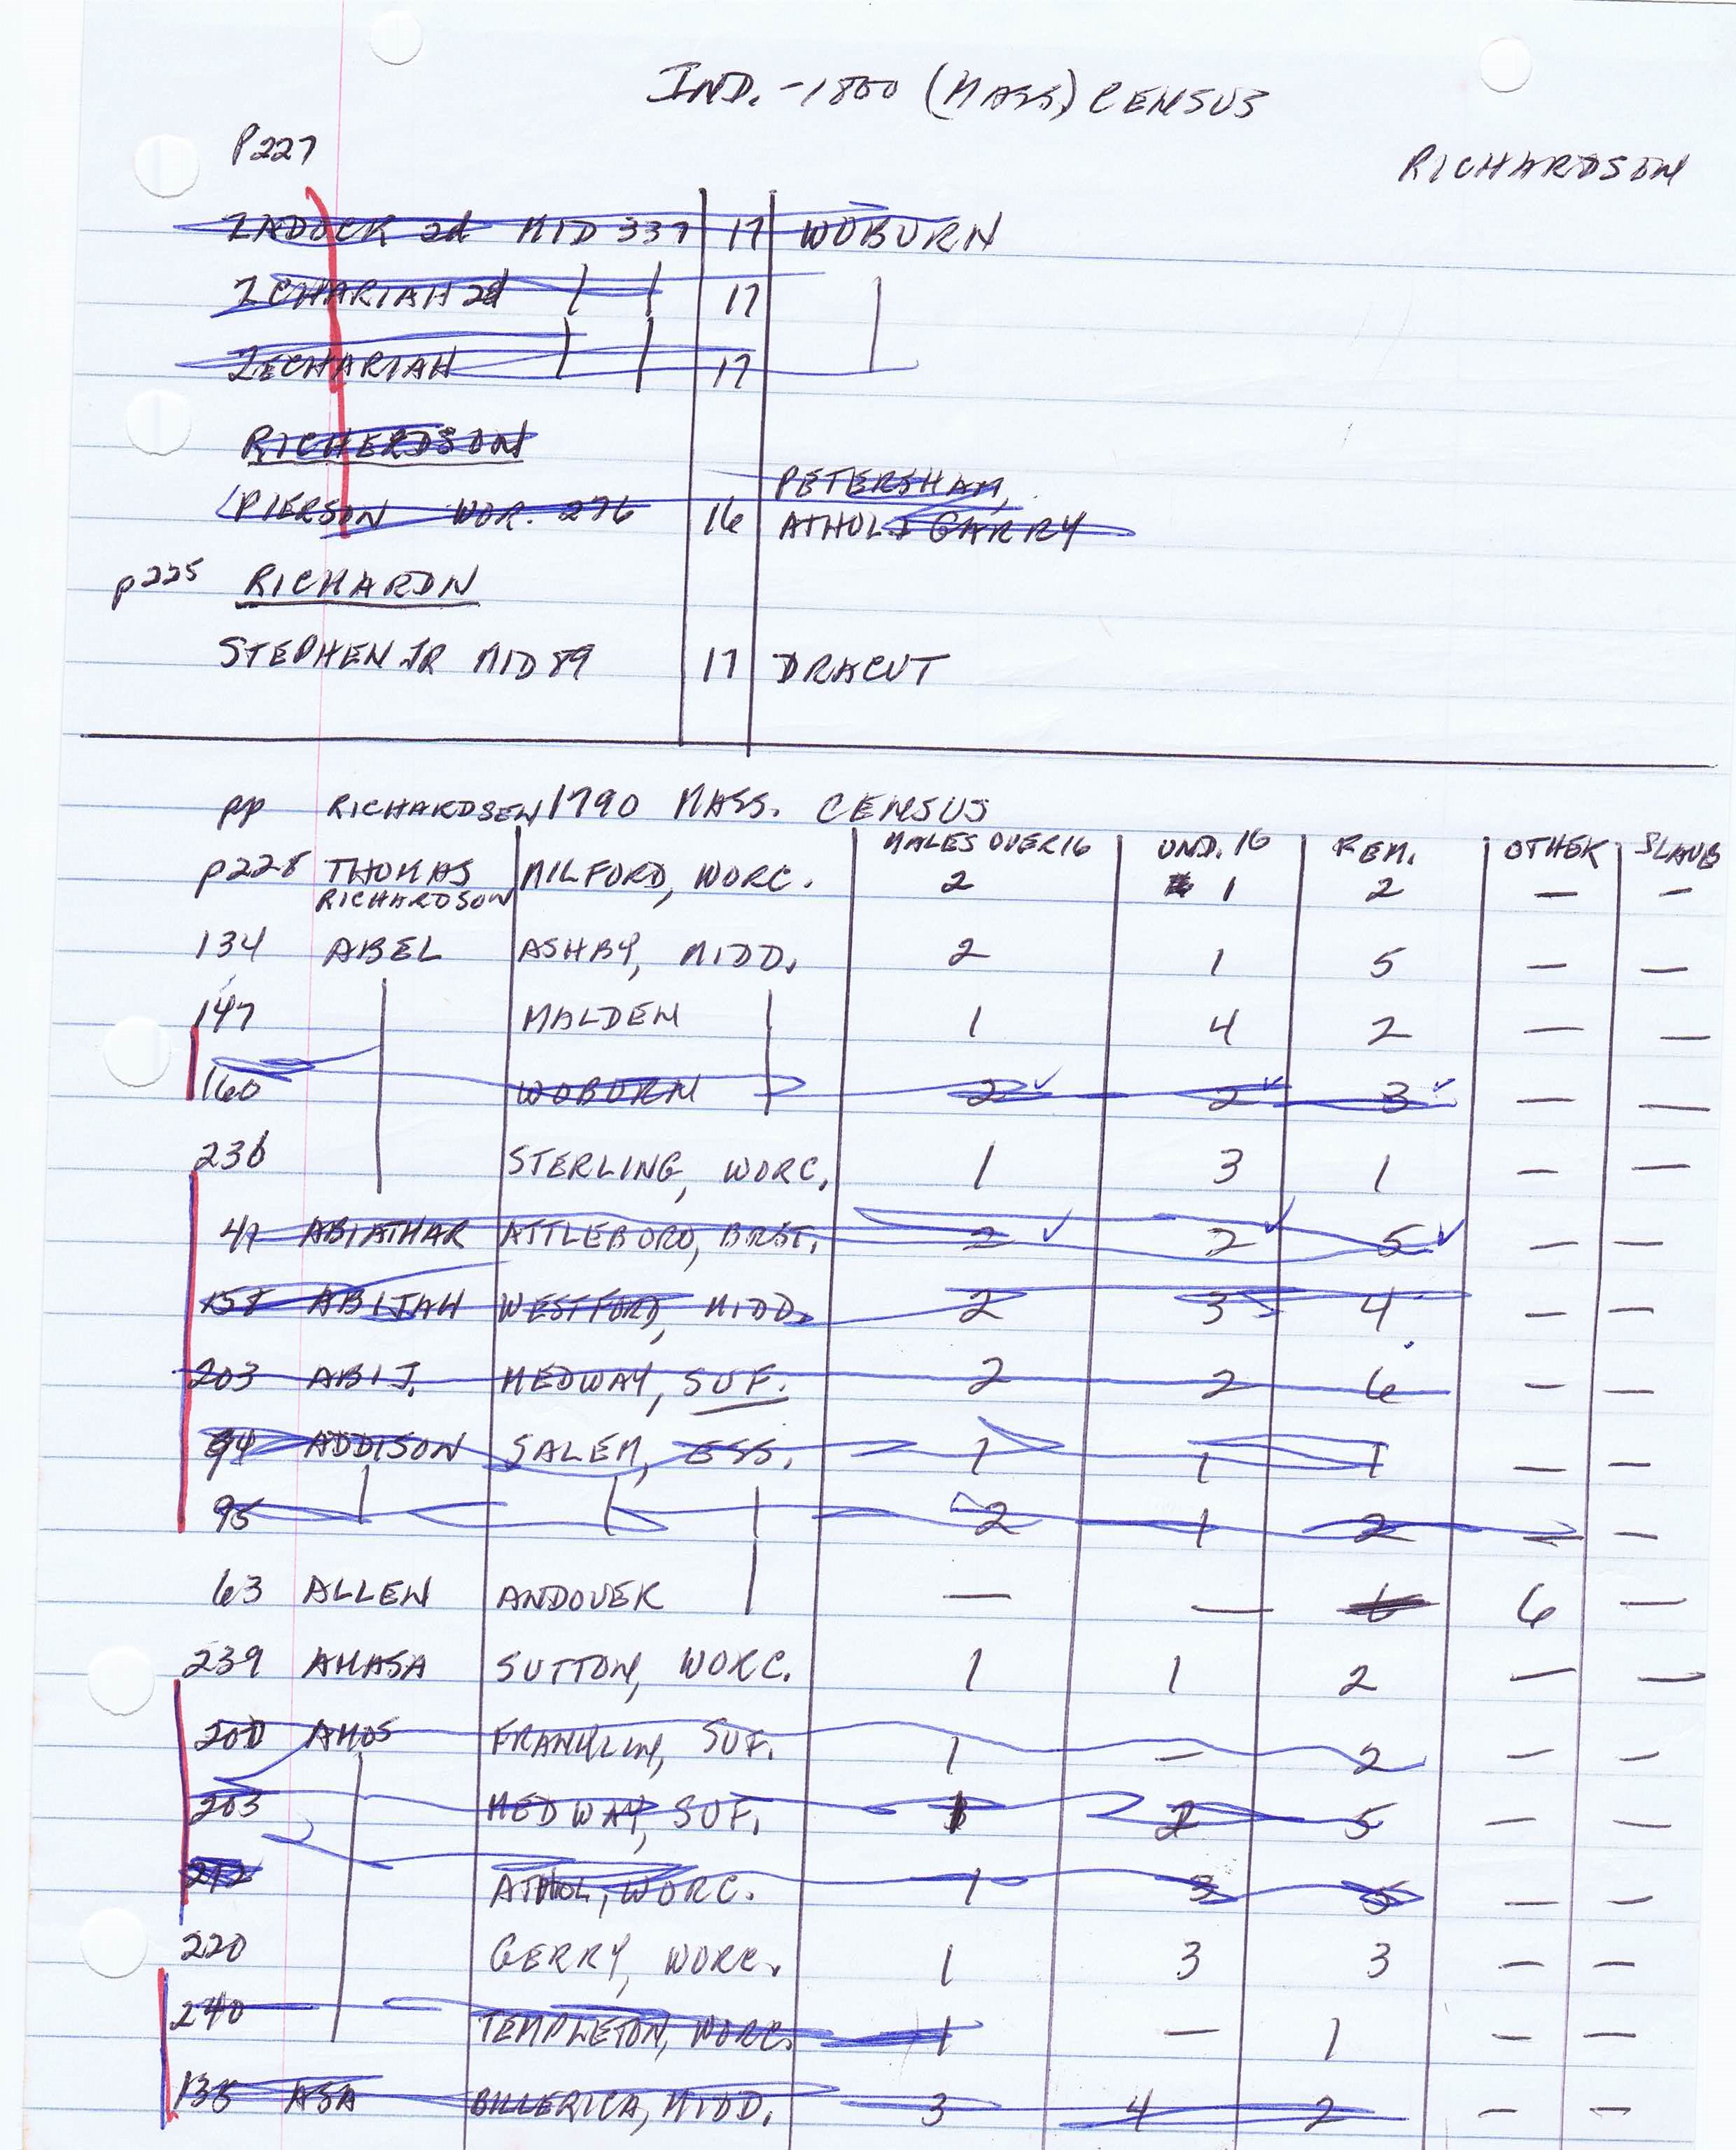 IND. - 1800 (MASS) CENSUS
P227
RICHARDSON
ZADOCK 2d MID 337 17 WOBURN
ZCHARIAH 2d 17
ZECHARIAH 17
RICHERDSON
PETERSHAM,
PIERSON WOR. 276 16 ATHOL & GARRY
p225 RICHARDN
STEPHEN JR MID 89 17 DRACUT
pp RICHARDSEN 1790 MASS. CENSUS
MALES OVER 16 UND. 16 REM. OTHER SLAVE
p228 THOMAS MILFORD, WORC. 2 1 2 — —
RICHARDSON
134 ABEL ASHBY, MIDD. 2 1 5 — —
147 MALDEN 1 4 2 — —
160 WOBURN 2 ✓ 2 ✓ 3 ✓ — —
236 STERLING, WORC. 1 3 1 — —
41 ABIATHAR ATTLEBORO, BRIST. 2 ✓ 2 ✓ 5 ✓ — —
158 ABIJAH WESTFORD, MIDD. 2 3 4 — —
203 ABIJ. MEDWAY, SUF. 2 2 6 — —
94 ADDISON SALEM, ESS. 1 1 1 — —
95 2 1 2 — —
63 ALLEN ANDOVER — — 6 6 —
239 AMASA SUTTON, WORC. 1 1 2 — —
200 AMOS FRANKLIN, SUF. 1 — 2 — —
203 MEDWAY, SUF. 1 2 5 — —
212 ATHOL, WORC. 1 3 5 — —
220 GERRY, WORC. 1 3 3 — —
240 TEMPLETON, WORC. 1 — 1 — —
135 ASA BILLERICA, MIDD. 3 4 2 — —